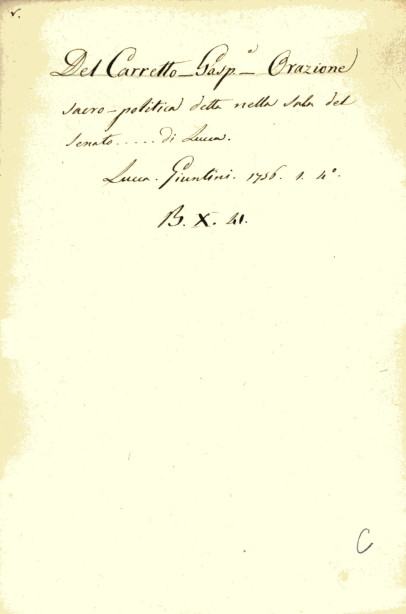 v.
Del Carretto_Gasp.º_ Orazione
sacro-politica detta nella sala del
senato..... di Lucca.
Lucca. Giuntini. 1756. 1. 4º.
B. X. 41.
C